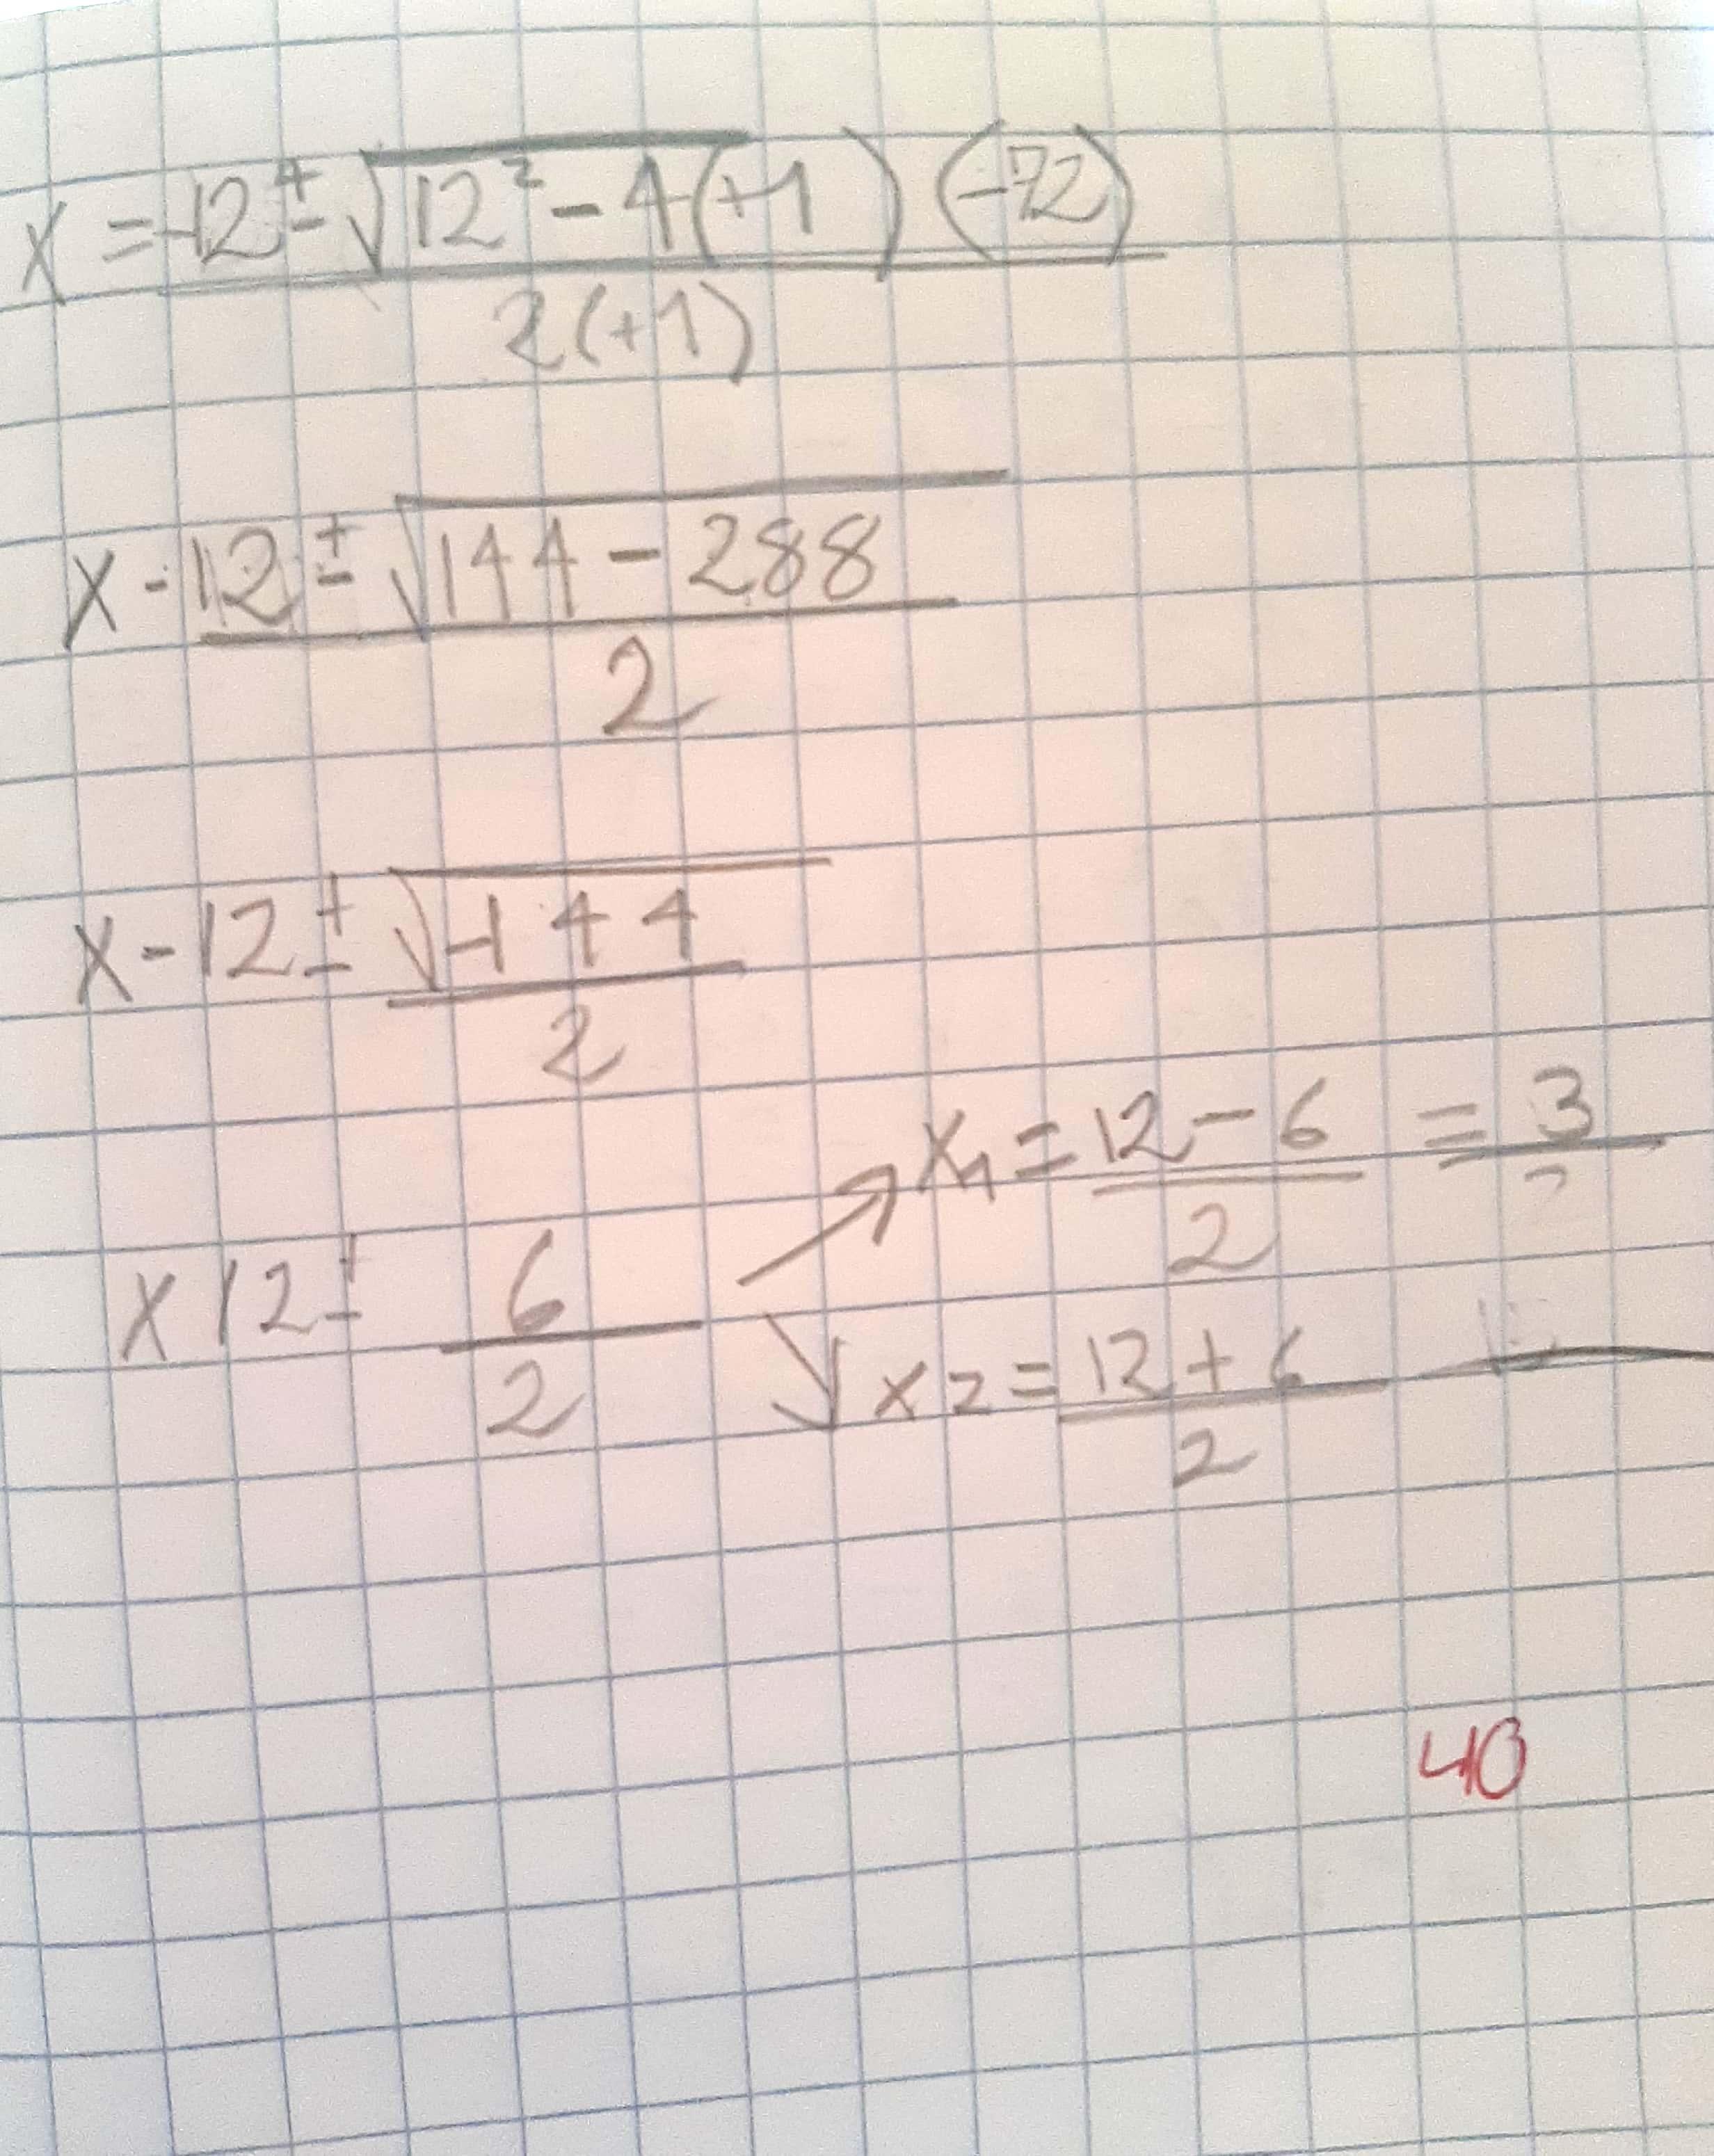 x = -12 ± √12² - 4(+1) (-72)
2(+1)
x - 12 ± √144 - 288
2
x - 12 ± √-144
2
x 12 ± 6
2
x1 = 12 - 6 = 3
2
x2 = 12 + 6
2
40